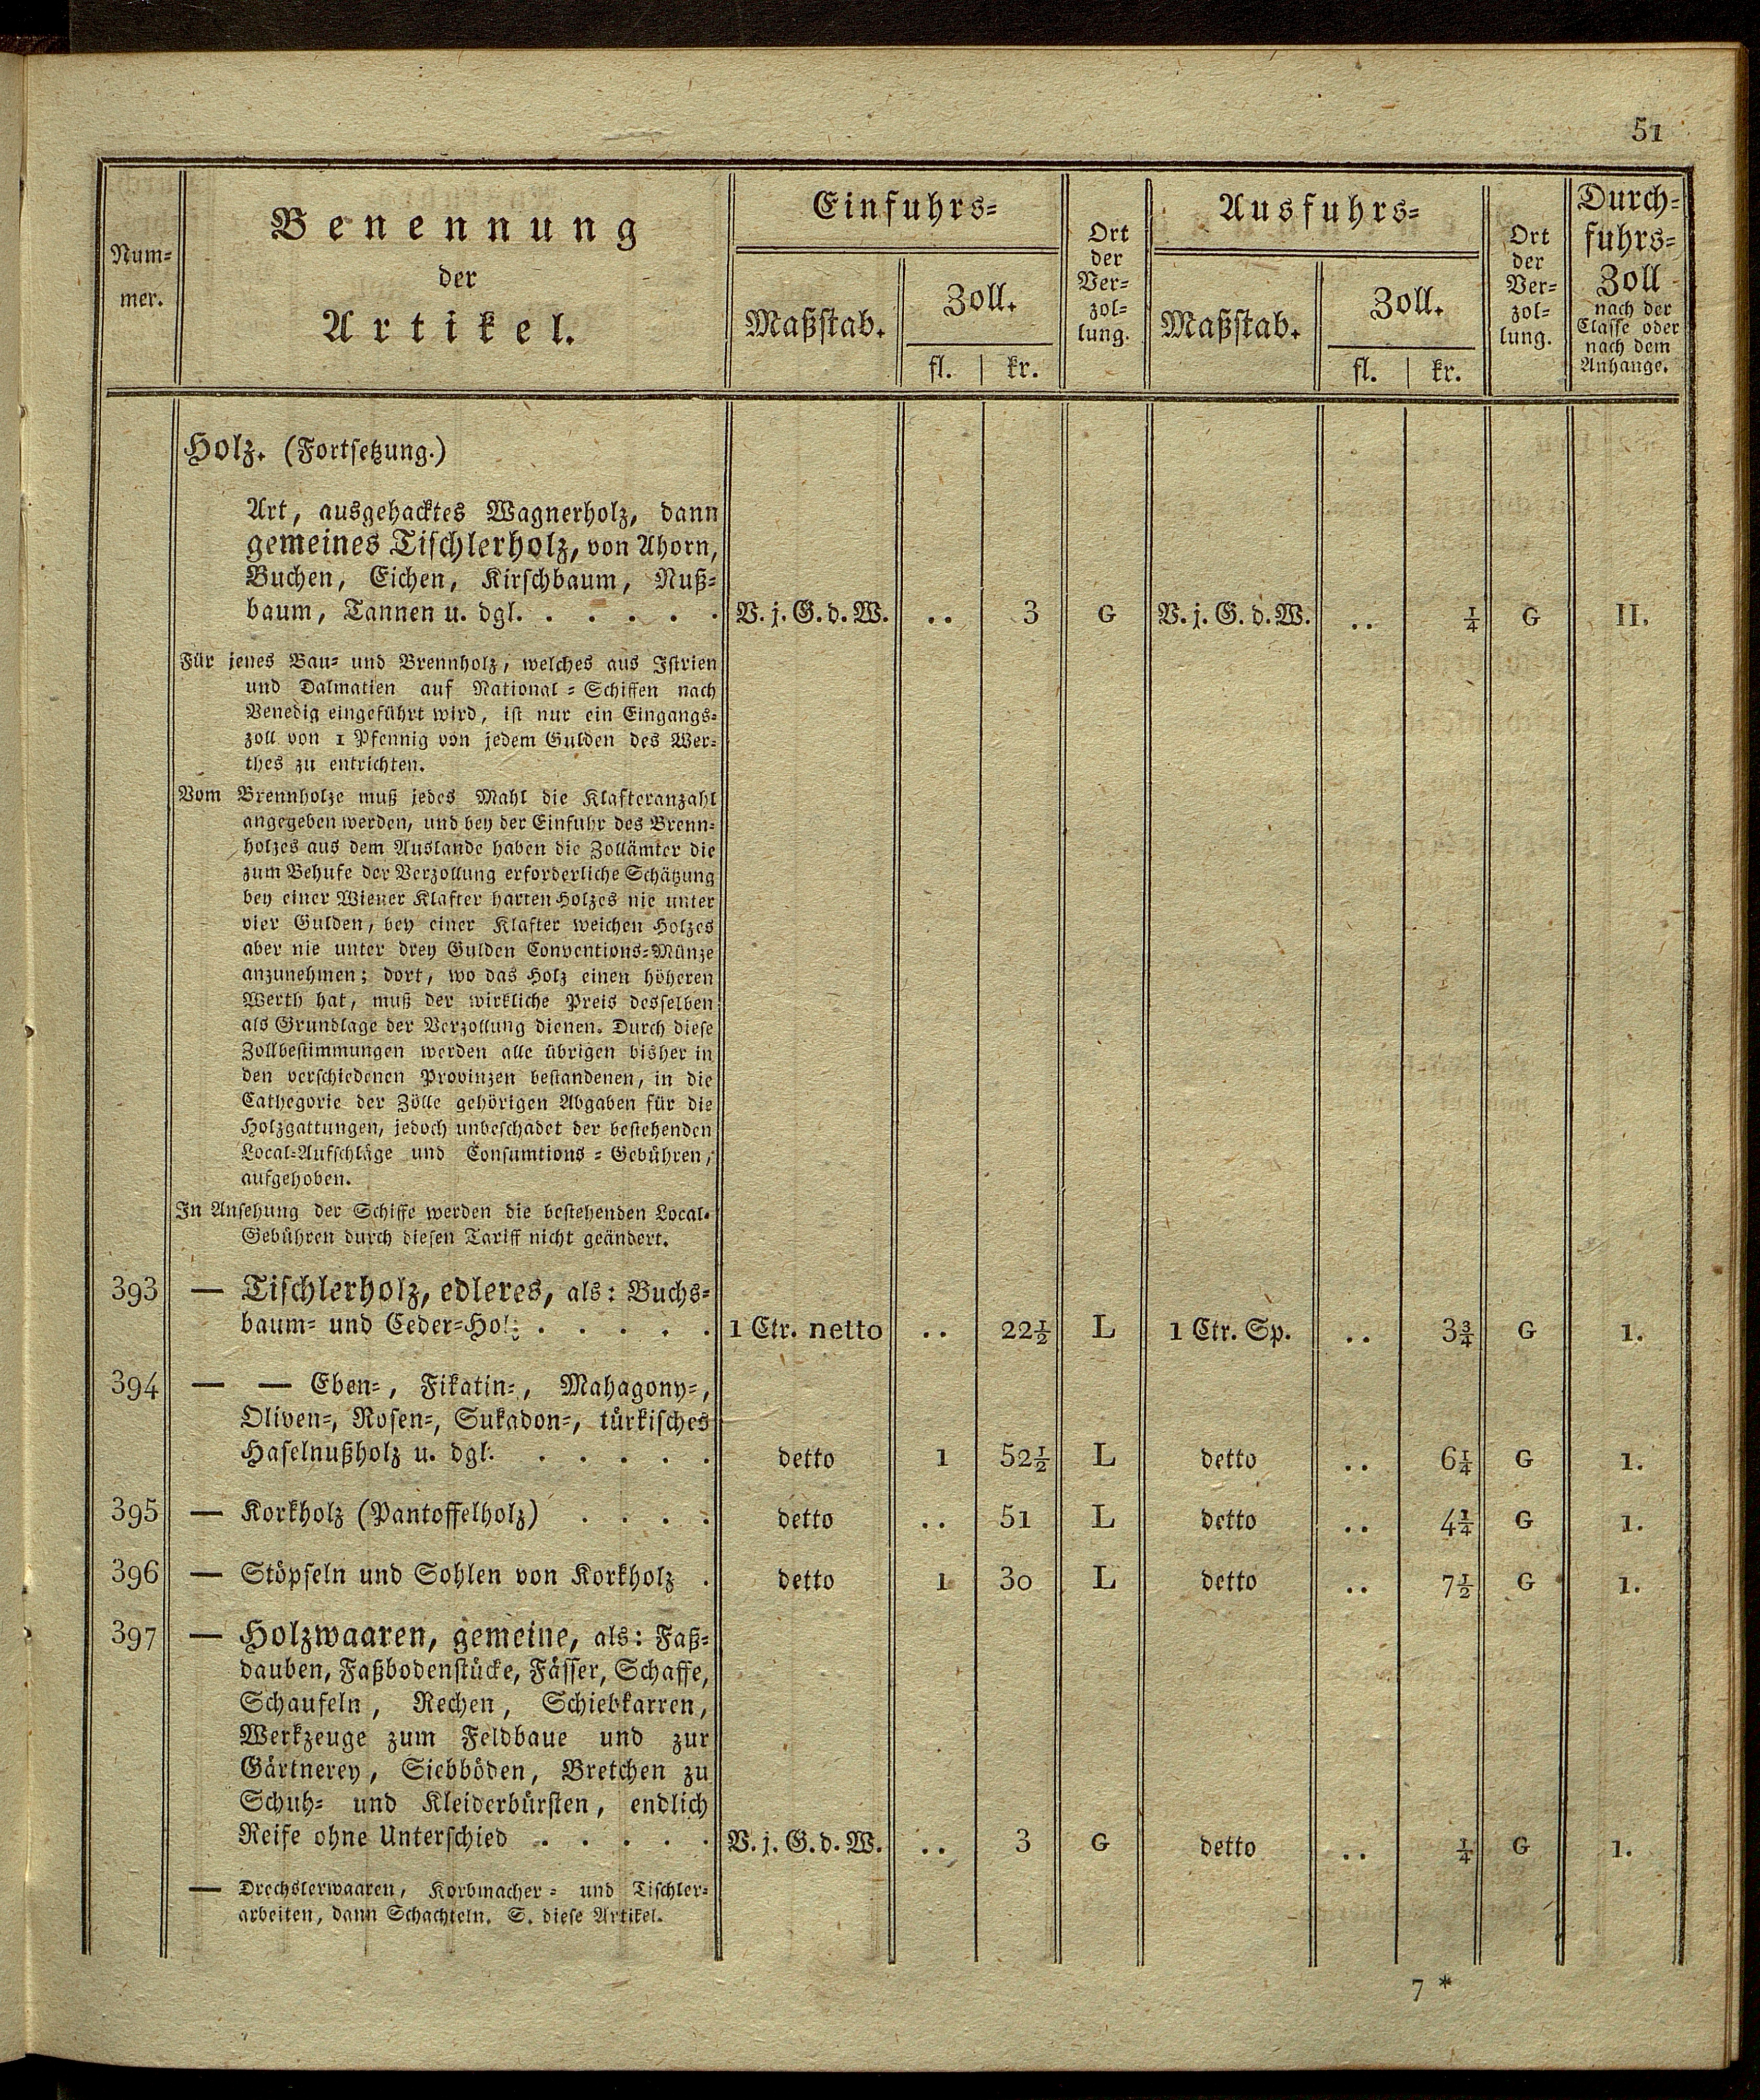 51
Num-
mer.
Benennung
der
Artikel.
Einfuhrs-
Maßstab.
Zoll.
fl. | kr.
Ort
der
Ver-
zol-
lung.
Ausfuhrs-
Maßstab.
Zoll.
fl. | kr.
Ort
der
Ver-
zol-
lung.
Durch-
fuhrs-
Zoll
nach der
Classe oder
nach dem
Anhange.
Holz. (Fortsetzung.)
Art, ausgehacktes Wagnerholz, dann
gemeines Tischlerholz, von Ahorn,
Buchen, Eichen, Kirschbaum, Nuß-
baum, Tannen u. dgl. . . . . . V. j. G. d. W. .. 3 G V. j. G. d. W. .. ¼ G II.
Für jenes Bau- und Brennholz, welches aus Istrien
und Dalmatien auf National-Schiffen nach
Venedig eingeführt wird, ist nur ein Eingangs-
zoll von 1 Pfennig von jedem Gulden des Wer-
thes zu entrichten.
Vom Brennholze muß jedes Mahl die Klafteranzahl
angegeben werden, und bey der Einfuhr des Brenn-
holzes aus dem Auslande haben die Zollämter die
zum Behufe der Verzollung erforderliche Schätzung
bey einer Wiener Klafter harten Holzes nie unter
vier Gulden, bey einer Klafter weichen Holzes
aber nie unter drey Gulden Conventions-Münze
anzunehmen; dort, wo das Holz einen höheren
Werth hat, muß der wirkliche Preis desselben
als Grundlage der Verzollung dienen. Durch diese
Zollbestimmungen werden alle übrigen bisher in
den verschiedenen Provinzen bestandenen, in die
Cathegorie der Zölle gehörigen Abgaben für die
Holzgattungen, jedoch unbeschadet der bestehenden
Local-Aufschläge und Consumtions-Gebühren,
aufgehoben.
In Ansehung der Schiffe werden die bestehenden Local-
Gebühren durch diesen Tariff nicht geändert.
393 — Tischlerholz, edleres, als: Buchs-
baum- und Ceder-Holz . . . . . 1 Ctr. netto .. 22½ L 1 Ctr. Sp. .. 3¾ G 1.
394 — — Eben-, Fikatin-, Mahagony-,
Oliven-, Rosen-, Sukadon-, türkisches
Haselnußholz u. dgl. . . . . . detto 1 52½ L detto .. 6¼ G 1.
395 — Korkholz (Pantoffelholz) . . . . detto .. 51 L detto .. 4¼ G 1.
396 — Stöpseln und Sohlen von Korkholz . detto 1 30 L detto .. 7½ G 1.
397 — Holzwaaren, gemeine, als: Faß-
dauben, Faßbodenstücke, Fässer, Schaffe,
Schaufeln, Rechen, Schiebkarren,
Werkzeuge zum Feldbaue und zur
Gärtnerey, Siebböden, Bretchen zu
Schuh- und Kleiderbürsten, endlich
Reife ohne Unterschied . . . . . V. j. G. d. W. .. 3 G detto .. ¼ G 1.
— Drechslerwaaren, Korbmacher- und Tischler-
arbeiten, dann Schachteln. S. diese Artikel.
7 *